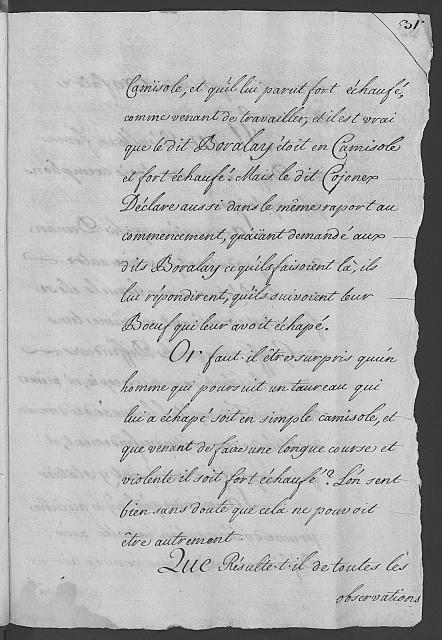 31
Camisole, et qu'il lui parut fort échaufé,
comme venant de travailler; et il est vrai
que le dit Boralay étoit en Camisole
et fort échaufé: Mais le dit Cojonex
Déclare aussi dans le même raport au
commencement, qu'aïant demandé aux
dits Boralay ce qu'ils faisoient là, ils
lui répondirent, qu'ils suivoient leur
Boeuf qui leur avoit échapé.
Or faut-il être surpris qu'un
homme qui poursuit un taureau qui
lui a échapé soit en simple camisole, et
que venant de faire une longue course et
violente il soit fort échaufé? L'on sent
bien sans doute que cela ne pouvoit
être autrement.
Que Résulte-t-il de toutes les
observations